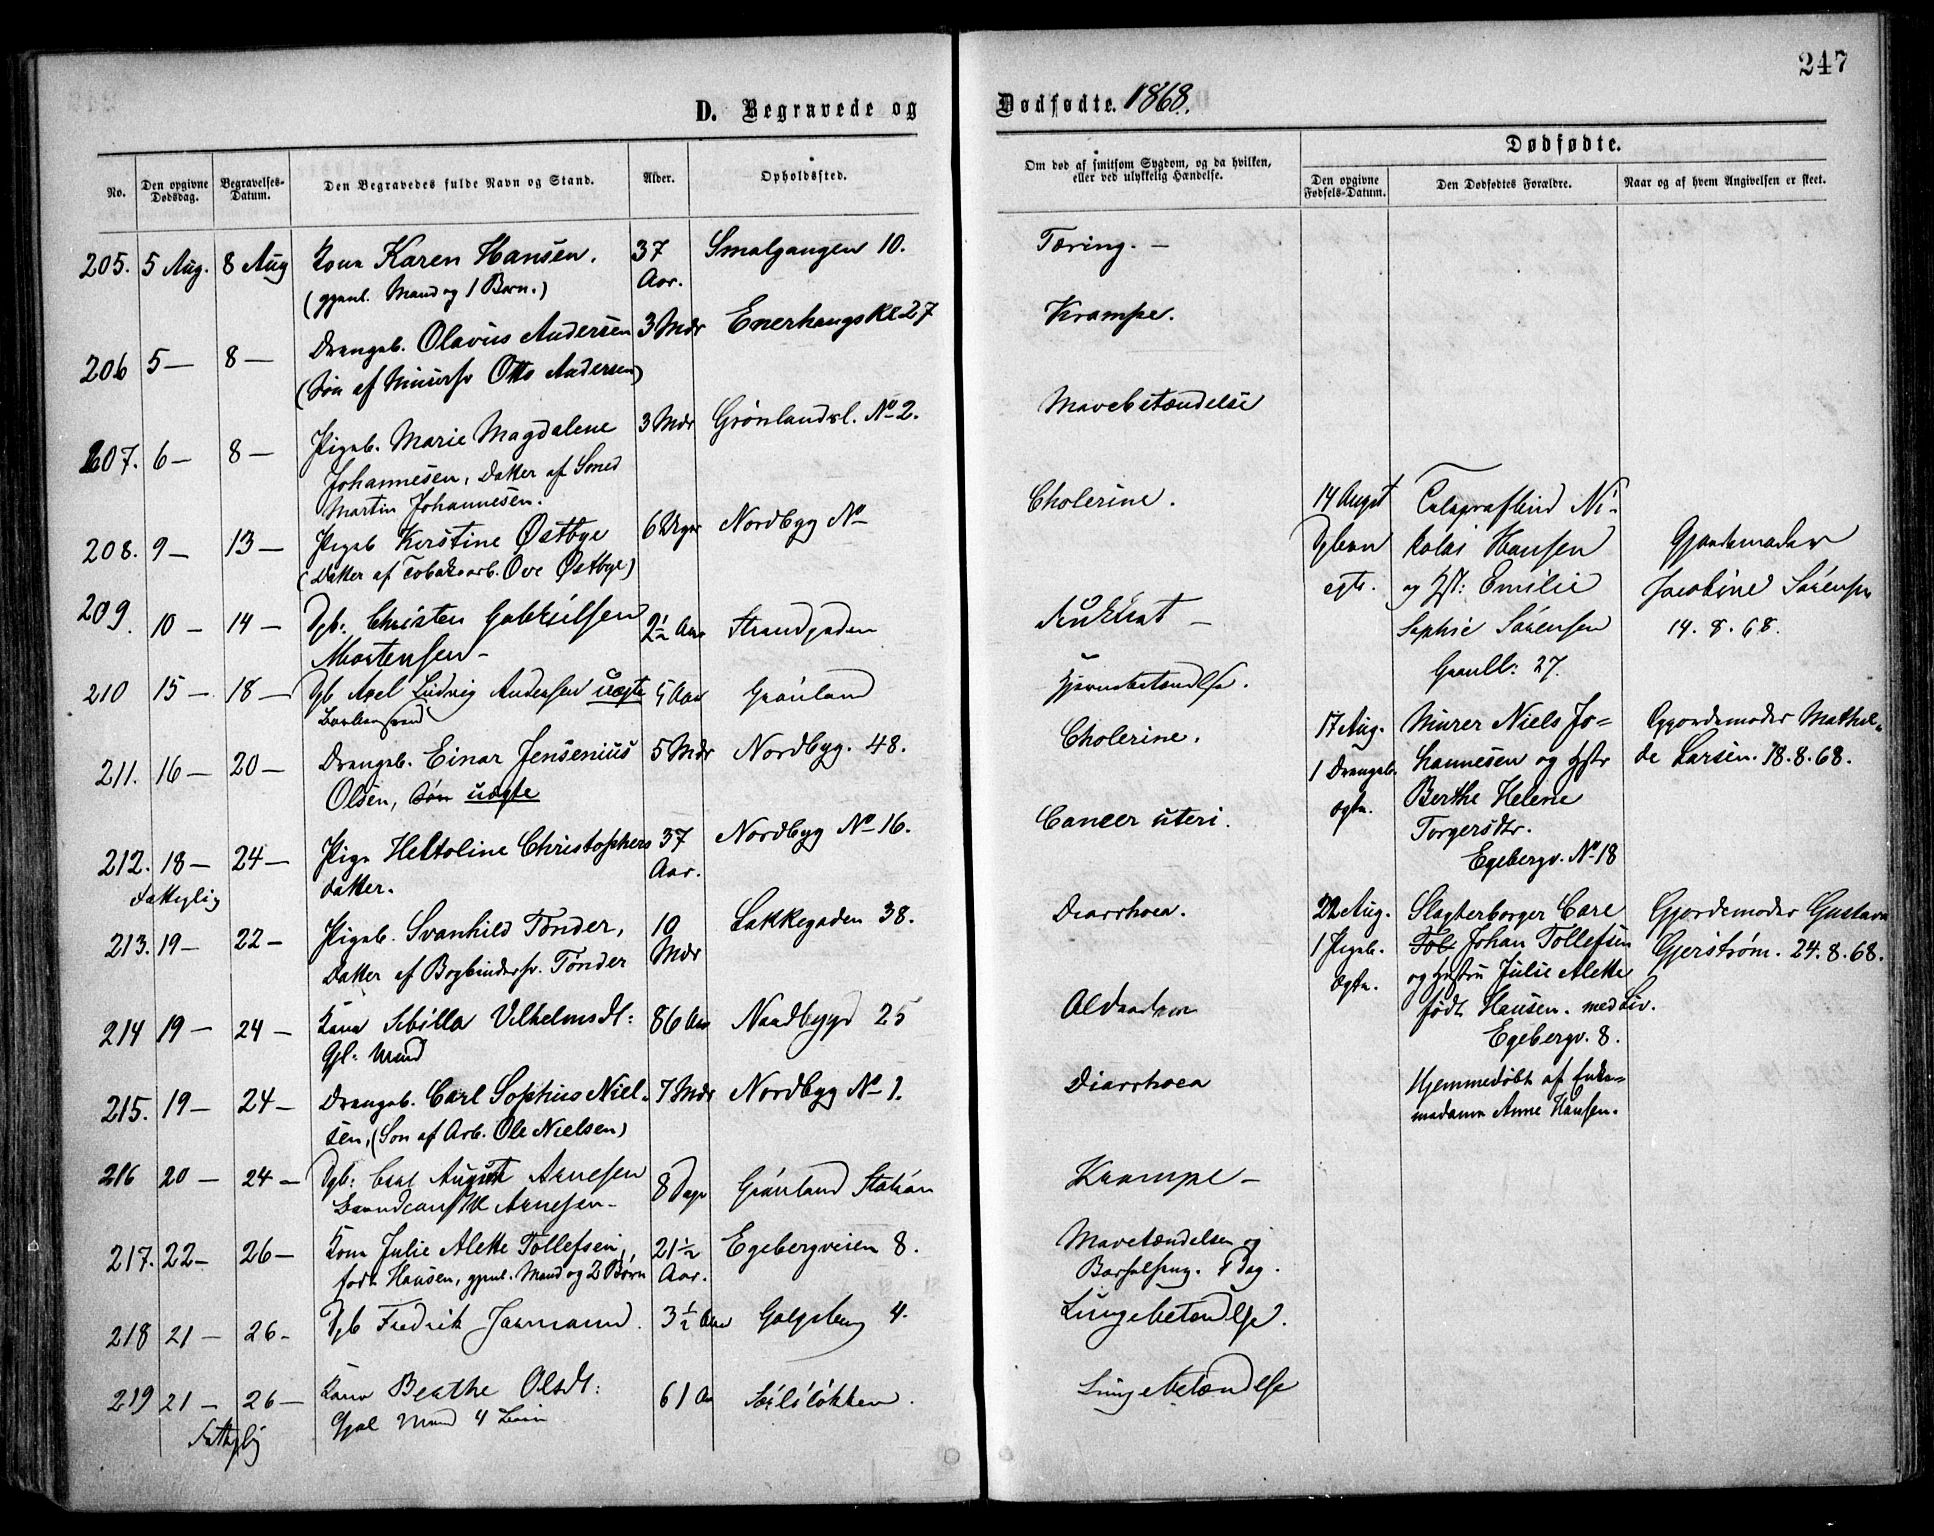 247
D. Begravede og Dødfødte. 1868.
No.
Den opgivne Dødsdag.
Begravelses-Datum.
Den Begravedes fulde Navn og Stand.
Alder.
Opholdssted.
Om død af smitsom Sygdom, og da hvilken,
eller ved ulykkelig Hændelse.
Dødfødte.
Den opgivne Fødsels-Datum.
Den Dødfødtes Forældre.
Naar og af hvem Angivelsen er skeet.
205. 5 Aug. 8 Aug Kone Karen Hansen. 37 Aar. Smalgangen 10. Tæring. —
(gjenl. Mand og 1 Barn.)
206 5 — 8 — Drengeb. Olavus Andersen 3 Mdr Enerhaugskl 27 Krampe.
(Søn af Murersv Otto Andersen)
207. 6 — 8 — Pigeb. Marie Magdalene 3 Mdr Grønlandsl. No 2. Mavebetændelse
Johannesen, Datter af Smed
Martin Johannesen.
208. 9 — 13 — Pigeb Kirstine Østbye 6 Uger Nordbyg No Cholerine.
(Datter af Tobaksarb. Ove Østbye)
209. 10 — 14 — Dgb: Christen Gabrielsen 2½ Aar Strandgaden
Mortensen —
210 15 — 18 — Dgb Axel Ludvig Andersen uægte 5 Aar Grønland Hjernebetændelse.
211. 16 — 20 — Drengeb. Einar Jensenius 5 Mdr Nordbyg. 48. Cholerine.
Olsen, Søn uægte
212. 18 — 24 — Pige Heltoline Christophers 37 Aar. Nordbyg No 16. Cancer uteri.
datter.
Fattiglig
213. 19 — 22 — Pigeb. Svanhild Tønder, 10 Mdr Lakkegaden 38. Diarrhoea.
Datter af Bogbindersv. Tønder
214 19 — 24 — Kone Sibilla Vilhelmsdt: 86 Aar Nordbygd 25 Alderdom
Gjl: Mand
215. 19 — 24 — Drengeb. Carl Sophus Niel- 7 Mdr Nordbyg No 1. Diarrhoea
sen, (Søn af Arb. Ole Nielsen)
216 20 — 24 — Dgb: Carl August Arnesen 8 Dage Grønland Station Krampe —
Arnesen —
217. 22 — 26 — Kone Julie Alette Tollefsen, 21½ Aar. Egebergveien 8. Mavetændelsen og
født Hansen, gjenl. Mand og 2 Børn Barselseng. 1 Dag.
218 21 — 26 — Dgb Fredrik Jarmann. 3½ Aar Galgeberg 4. Lungebetændelse.
219 21 — 26 — Kone Berthe Olsdt: 61 Aar Lungebetændelse
Gjel Mand 4 Børn
Fattiglig
14 August
Dgbarn
egte.
Telegrafbud Ni-
kolai Hansen
og Hst: Emilie
Sophie Sørensen
Grønl: 27.
Gjordemoder
Jacobine Sørensen
14. 8. 68.
17 Aug.
1 Drengeb.
ægte.
Murer Niels Jo-
hannesen og Hstr
Berthe Helene
Torgersdtr.
Egebergv. No 18
Gjordemoder Mathil-
de Larsen. 18. 8. 68.
22 Aug.
1 Pigeb.
ægte.
Slagterborger Carl
Tol Johan Tollefsen
og Hustru Julie Alette
født Hansen. med Liv.
Egebergv. 8.
Hjemmedøbt af Enke-
madame Anne Hansen.
Gjordemoder Gustava
Gjerstrøm. 24. 8. 68.